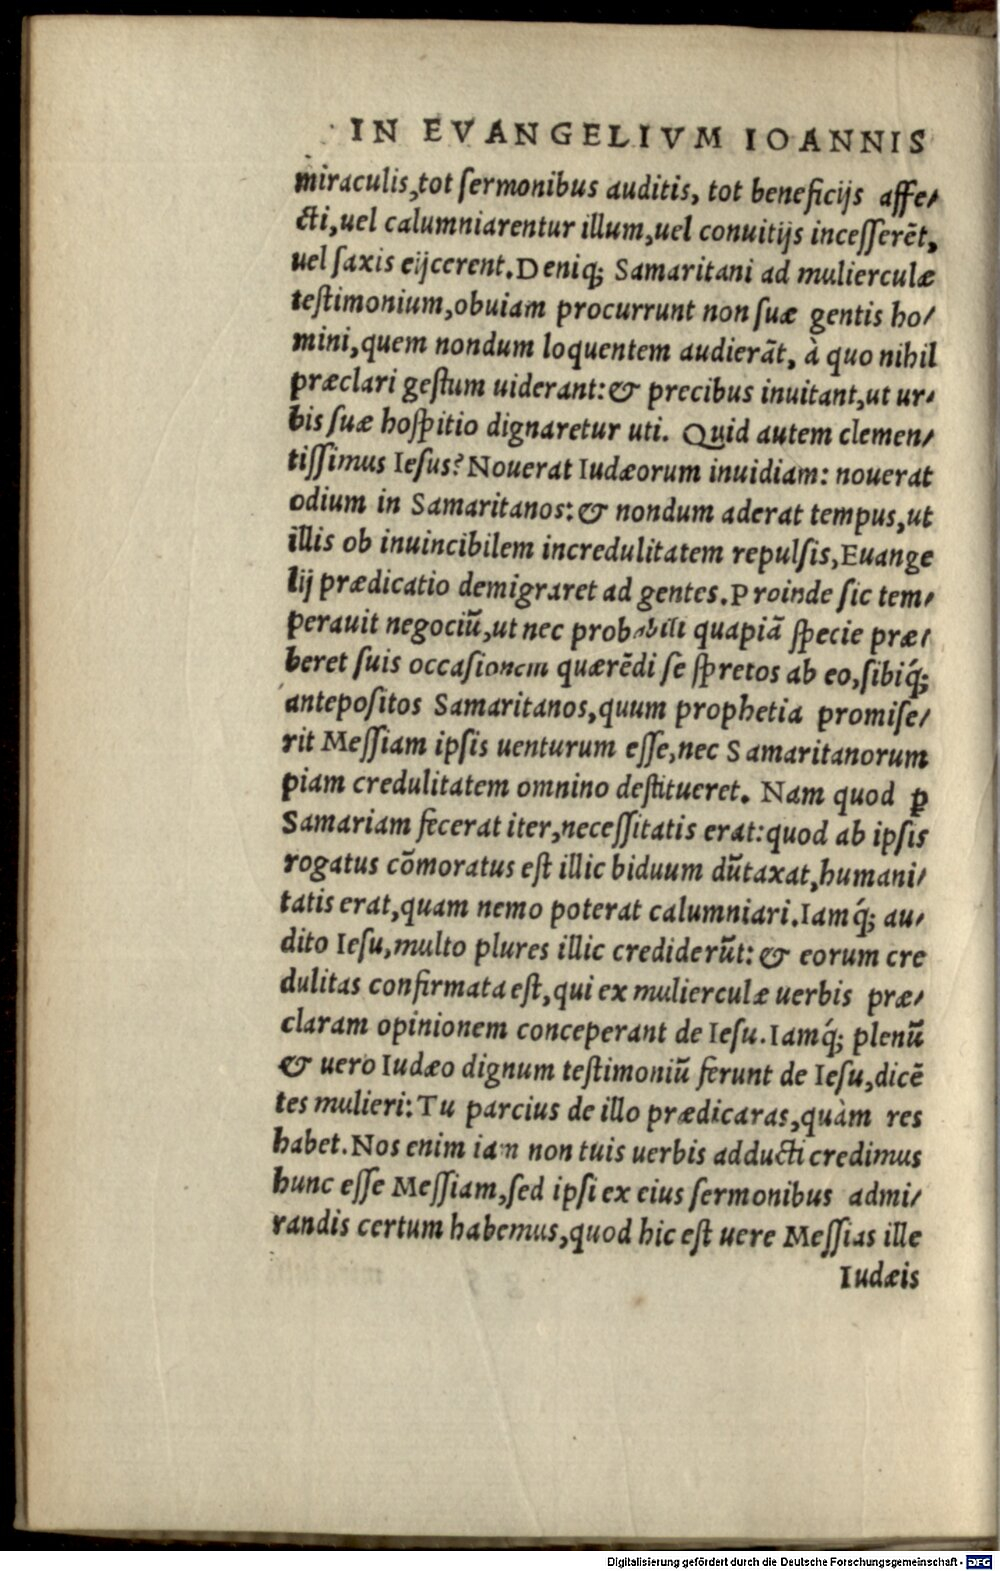 IN EVANGELIVM IOANNIS
miraculis,tot sermonibus auditis, tot beneficijs affe/
cti,uel calumniarentur illum,uel conuitijs incesserēt,
uel saxis eijcerent.Deniq; Samaritani ad mulierculæ
testimonium,obuiam procurrunt non suæ gentis ho/
mini,quem nondum loquentem audierāt, à quo nihil
præclari gestum uiderant:& precibus inuitant,ut ur/
bis suæ hospitio dignaretur uti. Quid autem clemen/
tissimus Iesus? Nouerat Iudæorum inuidiam: nouerat
odium in Samaritanos:& nondum aderat tempus,ut
illis ob inuincibilem incredulitatem repulsis,Euange
lij prædicatio demigraret ad gentes.Proinde sic tem/
perauit negociū,ut nec probabili quapiā specie præ/
beret suis occasionem quærēdi se spretos ab eo,sibiq́;
antepositos Samaritanos,quum prophetia promise/
rit Messiam ipsis uenturum esse,nec Samaritanorum
piam credulitatem omnino destitueret. Nam quod ꝑ
Samariam fecerat iter,necessitatis erat:quod ab ipsis
rogatus cōmoratus est illic biduum dūtaxat,humani/
tatis erat,quam nemo poterat calumniari.Iamq́; au/
dito Iesu,multo plures illic crediderūt: & eorum cre
dulitas confirmata est,qui ex mulierculæ uerbis præ/
claram opinionem conceperant de Iesu.Iamq́; plenū
& uero Iudæo dignum testimoniū ferunt de Iesu,dicē
tes mulieri:Tu parcius de illo prædicaras,quàm res
habet.Nos enim iam non tuis uerbis adducti credimus
hunc esse Messiam,sed ipsi ex eius sermonibus admi/
randis certum habemus,quod hic est uere Messias ille
Iudæis
Digitalisierung gefördert durch die Deutsche Forschungsgemeinschaft - DFG